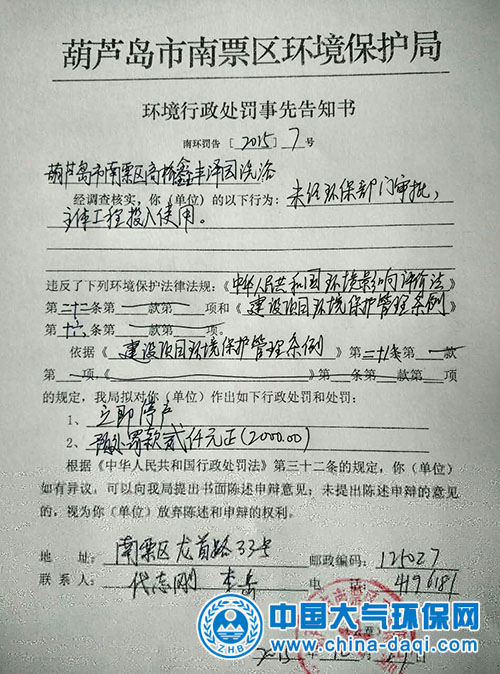 葫芦岛市南票区环境保护局
环境行政处罚事先告知书
南环罚告〔2015〕7号
葫芦岛市南票区高桥鑫丰泽园洗浴
经调查核实，你（单位）的以下行为：未经环保部门审批，
主体工程投入使用。
违反了下列环境保护法律法规：《中华人民共和国环境影响评价法》
第二十二条第一款第 项和《建设项目环境保护管理条例》
第十六条第 款第 项。
依据《建设项目环境保护管理条例》第二十八条第一款
第 项，《 》第 条第 款第 项
的规定，我局拟对你（单位）作出如下行政处罚和处罚：
1、立即停产
2、 处罚款贰仟元正（2000.00）
根据《中华人民共和国行政处罚法》第三十二条的规定，你（单位）
如有异议，可以向我局提出书面陈述申辩意见；未提出陈述申辩的意见
的，视为你（单位）放弃陈述和申辩的权利。
地 址：南票区龙首路33号 邮政编码：125027
联 系 人：代志刚 李岳 电 话：4196181
中国大气环保网
www.china-daqi.com
2015年